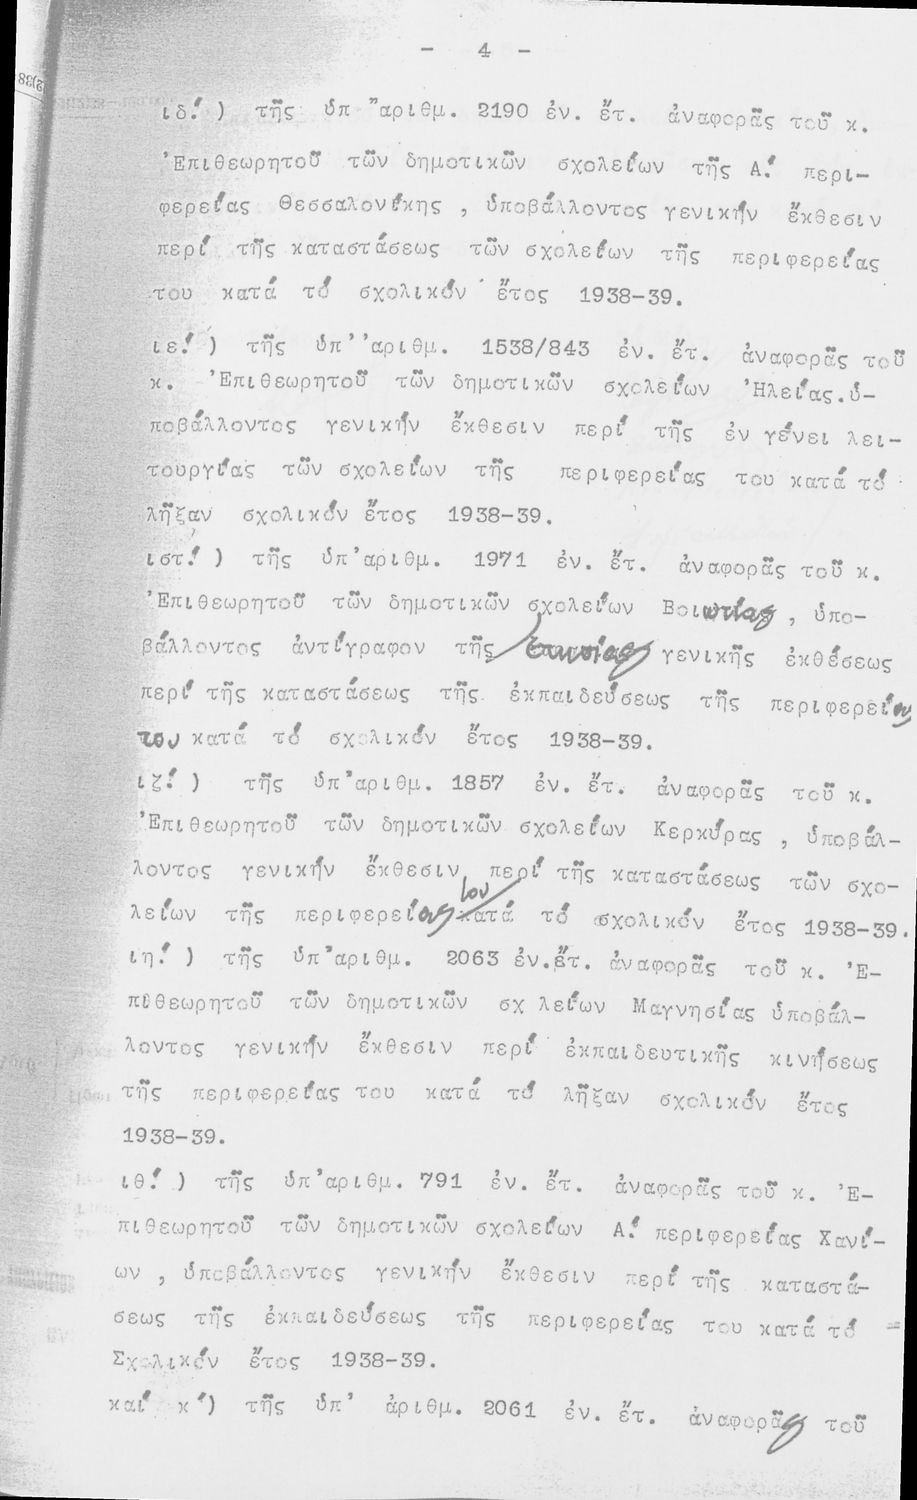 - 4 -
ιδ.́ ) τῆς ὑπ ῎αριθμ. 2190 ἐν. ἔτ. ἀναφορᾶς τοῦ κ.
Ἐπιθεωρητοῦ τῶν δημοτικῶν σχολείων τῆς Α.́ περι-
φερείας Θεσσαλονίκης , ὑποβάλλοντος γενικήν ἔκθεσιν
περί τῆς καταστάσεως τῶν σχολείων τῆς περιφερείας
του κατά τό σχολικόν ἔτος 1938-39.
ιε.́ ) τῆς ὑπ’’αριθμ. 1538/843 ἐν. ἔτ. ἀναφορᾶς τοῦ
κ. Ἐπιθεωρητοῦ τῶν δημοτικῶν σχολείων Ἠλείας.ὑ-
ποβάλλοντος γενικήν ἔκθεσιν περί τῆς ἐν γένει λει-
τουργίας τῶν σχολείων τῆς περιφερείας του κατά τό
λῆξαν σχολικόν ἔτος 1938-39.
ιστ.́ ) τῆς ὑπ’αριθμ. 1971 ἐν. ἔτ. ἀναφορᾶς τοῦ κ.
Ἐπιθεωρητοῦ τῶν δημοτικῶν σχολείων Βοιωτίας , ὑπο-
βάλλοντος ἀντίγραφον τῆς ἐτησίας γενικῆς ἐκθέσεως
περί τῆς καταστάσεως τῆς ἐκπαιδεύσεως τῆς περιφερείας
του κατά τό σχολικόν ἔτος 1938-39.
ιζ.́ ) τῆς ὑπ’αριθμ. 1857 ἐν. ἔτ. ἀναφορᾶς τοῦ κ.
Ἐπιθεωρητοῦ τῶν δημοτικῶν σχολείων Κερκύρας , ὑποβάλ-
λοντος γενικήν ἔκθεσιν περί τῆς καταστάσεως τῶν σχο-
λείων τῆς περιφερείας του κατά τό σχολικόν ἔτος 1938-39.
ιη.́ ) τῆς ὑπ’αριθμ. 2063 ἐν.ἔτ. ἀναφορᾶς τοῦ κ. Ἐ-
πιθεωρητοῦ τῶν δημοτικῶν σχ λείων Μαγνησίας ὑποβάλ-
λοντος γενικήν ἔκθεσιν περί ἐκπαιδευτικῆς κινήσεως
τῆς περιφερείας του κατά τό λῆξαν σχολικόν ἔτος
1938-39.
ιθ.́ ) τῆς ὑπ’αριθμ. 791 ἐν. ἔτ. ἀναφορᾶς τοῦ κ. Ἐ-
πιθεωρητοῦ τῶν δημοτικῶν σχολείων Α.́ περιφερείας Χανί-
ων , ὑποβάλλοντος γενικήν ἔκθεσιν περί τῆς καταστά-
σεως τῆς ἐκπαιδεύσεως τῆς περιφερείας του κατά τό
Σχολικόν ἔτος 1938-39.
καί κ΄) τῆς ὑπ’ ἀριθμ. 2061 ἐν. ἔτ. ἀναφορᾶς τοῦ